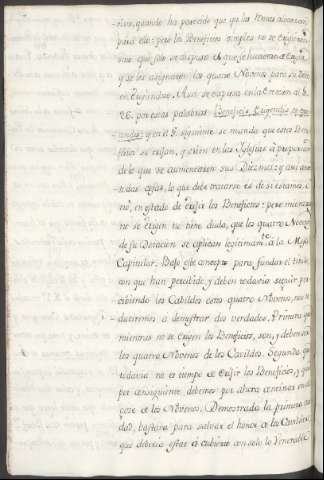 rian, quando ha parecido que ya las Rentas alcanzan
para ello: pero los Beneficios simples no se erigieron
sino que solo se dispuso el que se huviesen de erigir,
que les asignaron los quatro Novenos para su Dote
en erigiendose. Asi se expresa en la Ereccion al §.
26. por estas palabras Beneficiis Erigendis
y en el §. siguiente se manda que estos Bene-
ficios se erijan, y criien en las Iglesias à proporcion
de lo que se aumentaren sus Diezmos: y asi ante
todas cosas, lo que debe tratarse es de si estamos, ô
nò, en estado de erijir los Beneficios: pero mientras
no se erijen no tiene duda, que los quatro Novenos
de su Dotacion se aplican legitimamte. à la Mesa
Capitular. Bajo este concepto para fundar el titulo
con que han percibido, y deben todavia seguir per-
cibiendo los Cabildos estos quatro Novenos, nos re-
duciremos a demostrar dos verdades. Primera que
mientras no se erijen los Beneficios, son, y deben ser
los quatro Novenos de los Cavildos. Segunda que
todavia no es tiempo de erijir los Beneficios, y que
por consiguiente deberàn por ahora continuar en el
goze de los Novenos. Demostrada la primera ver-
dad, bastara para salvar el honor de los Cavildos,
que deberia estar à cubierto con solo lo Venerable